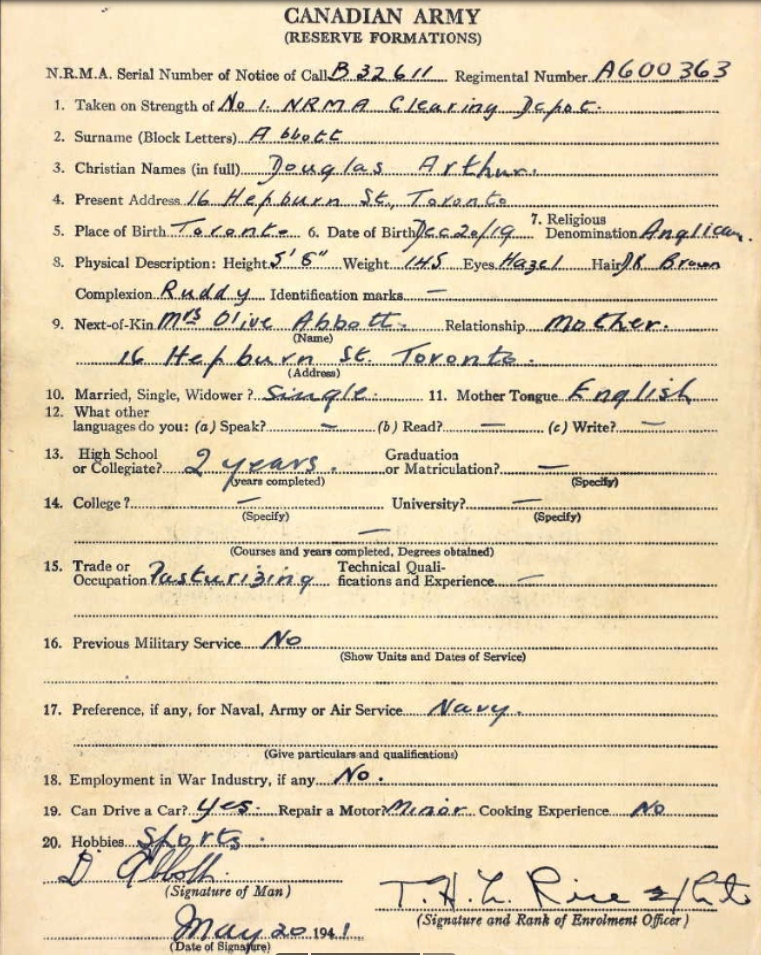 CANADIAN ARMY
(RESERVE FORMATIONS)
N.R.M.A. Serial Number of Notice of Call B 32611 Regimental Number A600363
1. Taken on Strength of No 1. NRMA Clearing Depot.
2. Surname (Block Letters) Abbott
3. Christian Names (in full) Douglas Arthur.
4. Present Address 16 Hepburn St., Toronto
5. Place of Birth Toronto 6. Date of Birth Dec 20/19 7. Religious Denomination Anglican.
8. Physical Description: Height 5' 8" Weight 145 Eyes Hazel Hair DK Brown
Complexion Ruddy Identification marks —
9. Next-of-Kin Mrs Olive Abbott. Relationship Mother.
(Name)
16 Hepburn St. Toronto.
(Address)
10. Married, Single, Widower? Single. 11. Mother Tongue English
12. What other
languages do you: (a) Speak? — (b) Read? — (c) Write? —
13. High School or Collegiate? 2 years. Graduation or Matriculation? —
(years completed) (Specify)
14. College? — University? —
(Specify) (Specify)
—
(Courses and years completed, Degrees obtained)
15. Trade or Occupation Pasturizing Technical Qualifications and Experience —
16. Previous Military Service No
(Show Units and Dates of Service)
17. Preference, if any, for Naval, Army or Air Service Navy.
(Give particulars and qualifications)
18. Employment in War Industry, if any No.
19. Can Drive a Car? Yes. Repair a Motor? Minor Cooking Experience No
20. Hobbies Sports.
D Abbott.
(Signature of Man)
T. H. L. Rice
(Signature and Rank of Enrolment Officer)
May 20 1941
(Date of Signature)